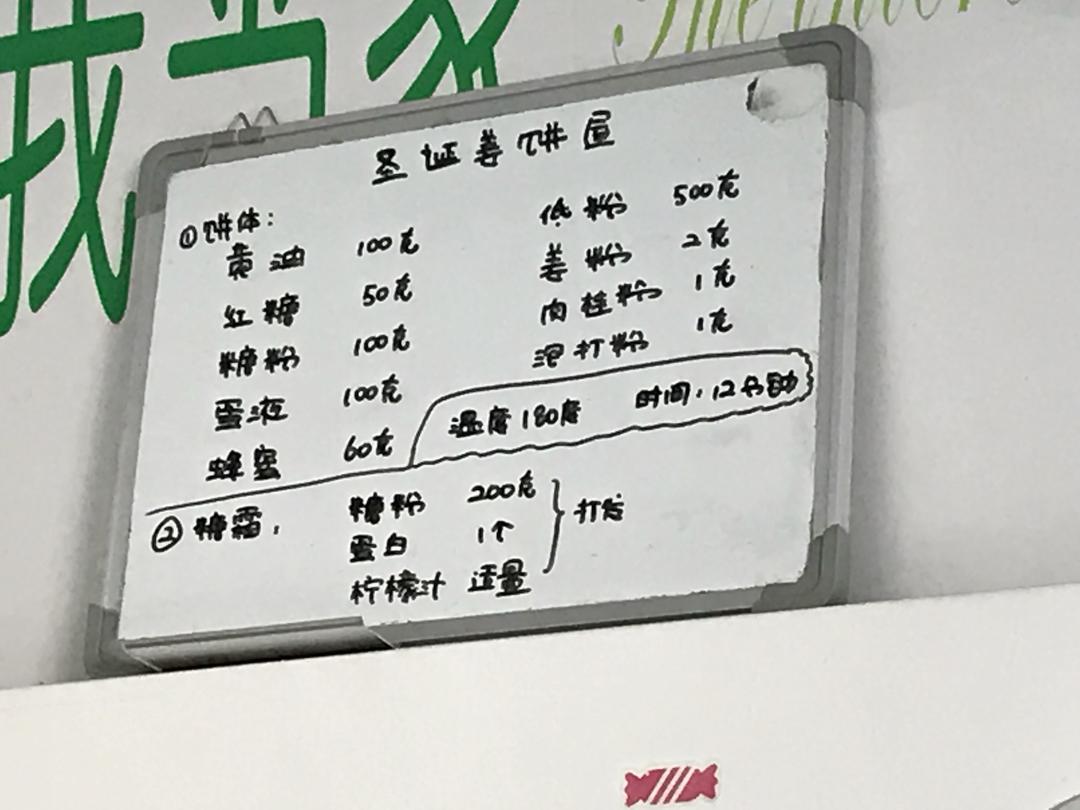 我当家
圣证姜饼屋
①饼体:
黄油 100克
红糖 50克
糖粉 100克
蛋液 100克
蜂蜜 60克
低粉 500克
姜粉 2克
肉桂粉 1克
泡打粉 1克
温度180度 时间:12分钟
②糖霜:
糖粉 200克
蛋白 1个
柠檬汁 适量
打发